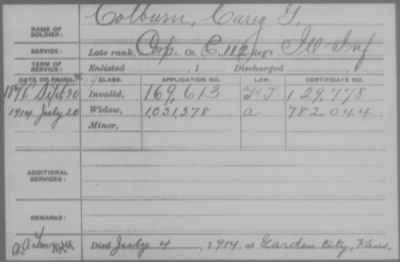 NAME OF SOLDIER: Colburn, Carey G.
SERVICE: Late rank, Corp. Co. E, 112 Reg't Ill Inf
TERM OF SERVICE: Enlisted , 1 Discharged , 1
DATE OF FILING. CLASS. APPLICATION NO. LAW. CERTIFICATE NO.
Sept 30 Invalid, 169,613 129,778
1914 July 20 Widow, 1,031,378 a 782044
Minor,
ADDITIONAL SERVICES:
REMARKS:
Died July 4, 1914, at Garden City, Kans.